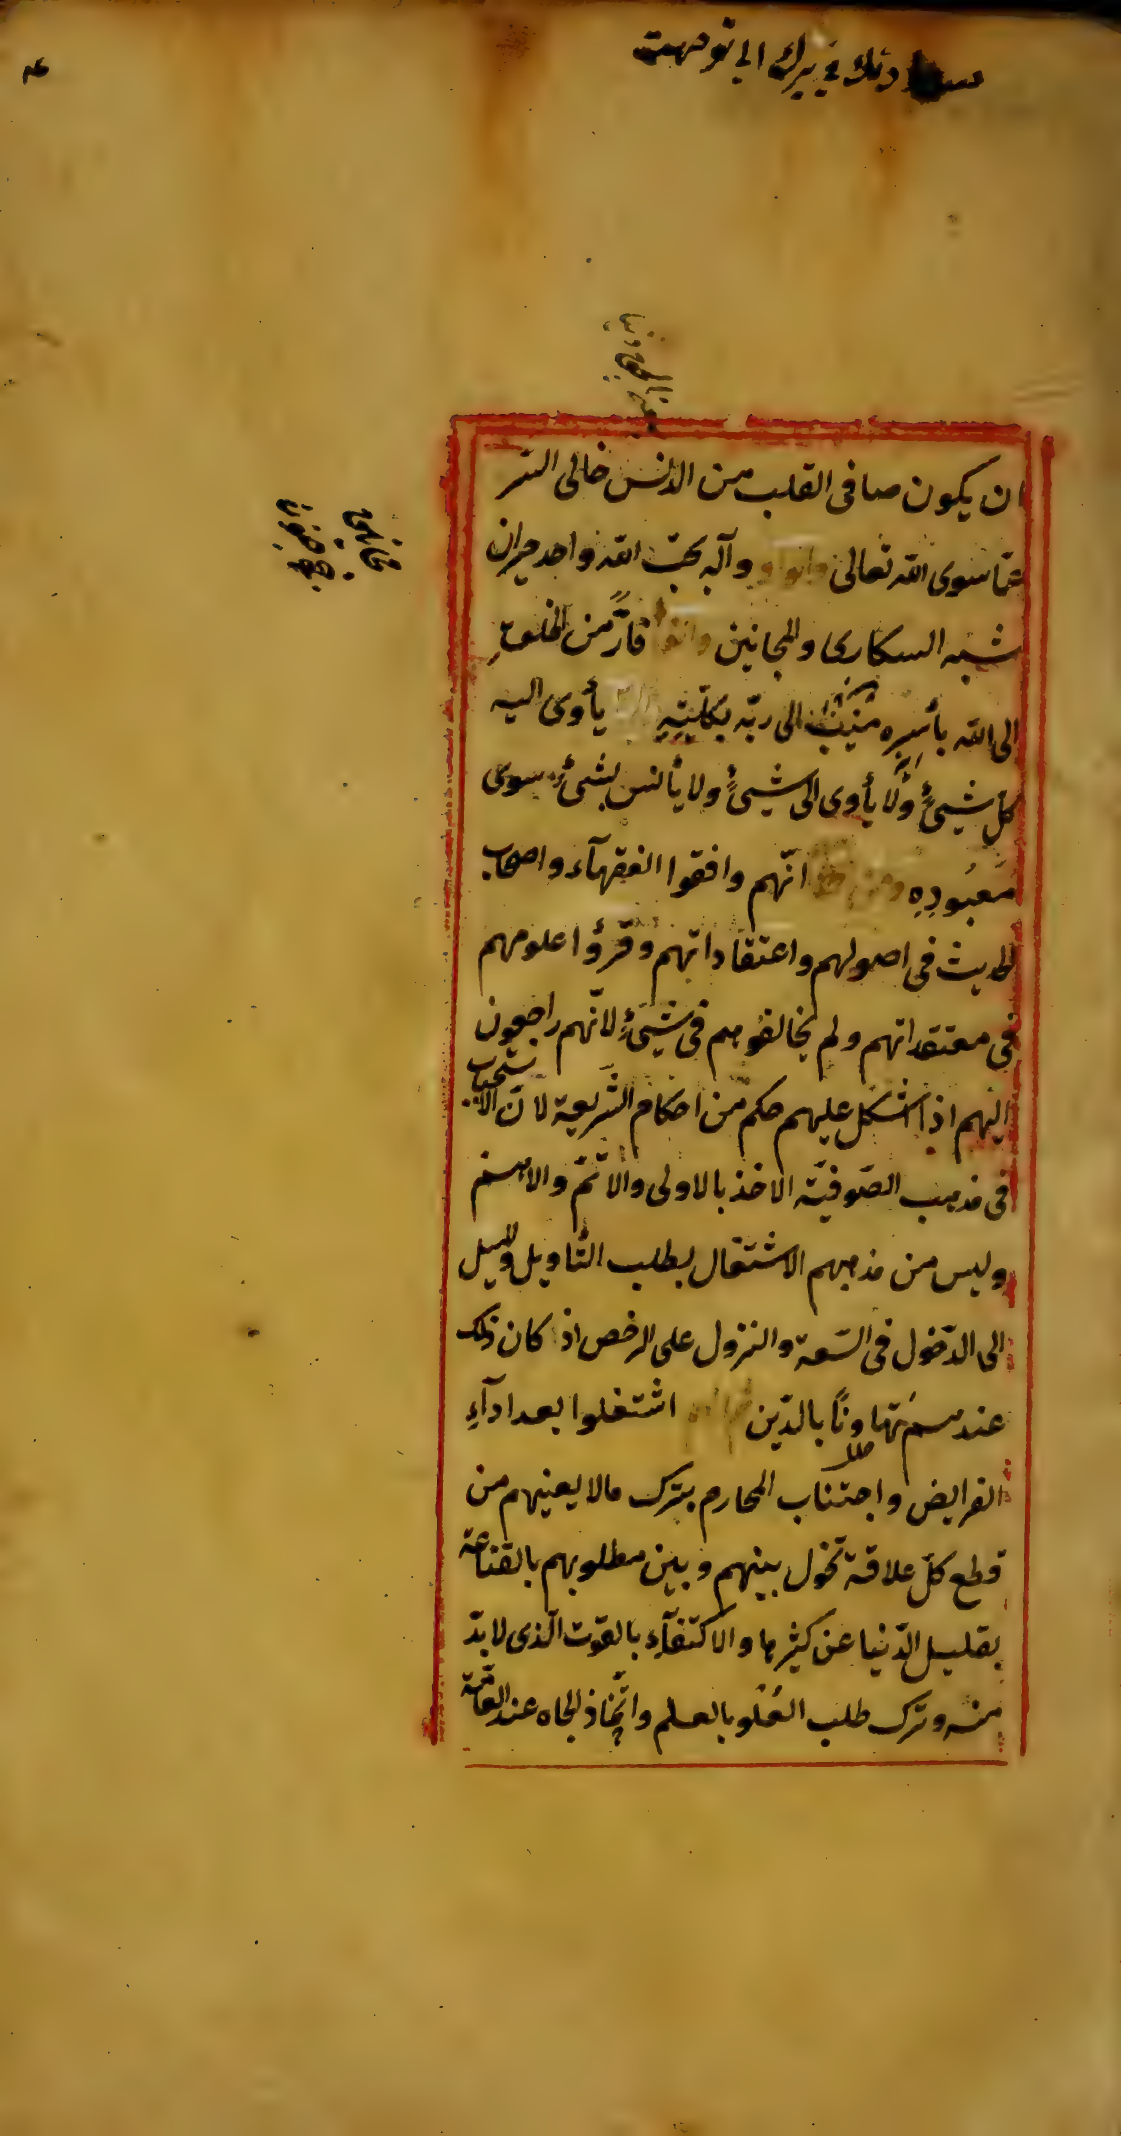 ان يكون صافى القلب من الدنس خالى السّر
عمّا سوى الله تعالى وآله بحبّ الله واحد حيران
شبه السكارى والمجانين فارًّ من الخلق
الى الله بأسره منيبًا الى ربّه بكلّيتِهِ يأوى اليه
كلّ شيئٍ ولا يأوى الى شيئٍ ولا يأنس بشيئٍ سوى
معبُودِهِ انّهم وافقوا الفقهآء واصحاب
الحديث فى اصولهم واعتقاداتهم وقرؤا علومهم
فى معتقداتهم ولم يخالفوهم فى شيئٍ لانّهم راجعون
اليهم اذا اشكل عليهم حكم من احكام الشّريعة لانّ الاستحباب
فى مذهب الصّوفيّة الاخذ بالاولى والاتّمّ
وليس من مذهبهم الاشتغال بطلب التّأويل والميل
الى الدّخول فى السّعة والنزول على الرخص اذا كان ذلك
عندهم تهاونًا بالدّين اشتغلوا بعد ادآءِ
الفرايض واجتناب المحارم بترك مالا يعنيهم من
قطع كلّ علاقة تحول بينهم وبين مطلوبهم بالقناعة
بقليل الدّنيا عن كثيرها والاكتفآءِ بالقوت الّذى لابدّ
منه وترك طلب العُلُو بالعلم واتّخاذ الجاه عند العامّة